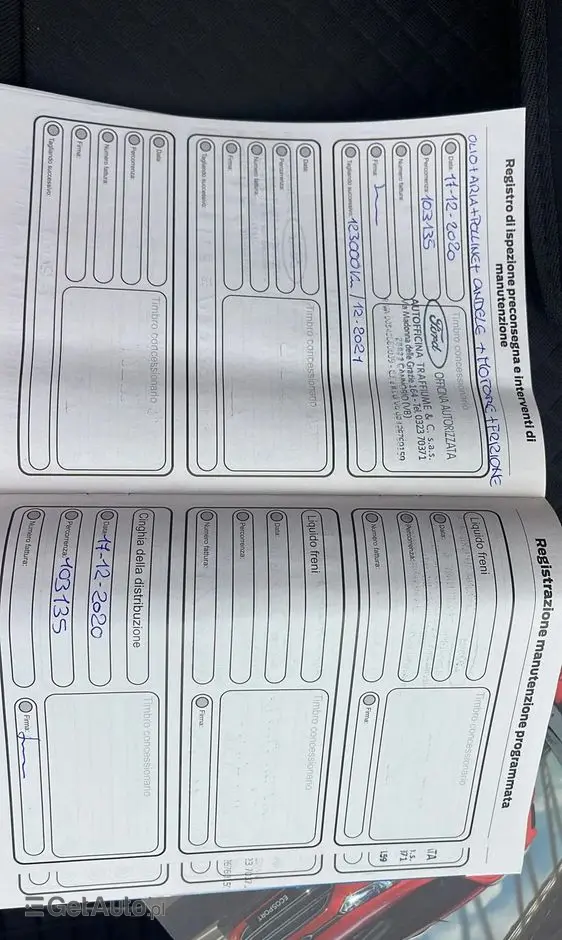 Registro di ispezione preconsegna e interventi di
manutenzione
OLIO + ARIA + POLLINE + CANDELE + MOTORE + FRIZIONE
Data: 17-12-2020
Percorrenza: 103135
Numero fattura:
Firma:
Tagliando successivo: 123000 Km / 12-2021
Timbro concessionario
Ford OFFICINA AUTORIZZATA
AUTOFFICINA TRAFFIUME & C. s.a.s.
Via Madonna delle Grazie, 164 - Tel. 0323 70371
Data:
Percorrenza:
Numero fattura:
Firma:
Tagliando successivo:
Timbro concessionario
Data:
Percorrenza:
Numero fattura:
Firma:
Tagliando successivo:
Timbro concessionario
Registrazione manutenzione programmata
Liquido freni
Data:
Percorrenza:
Numero fattura:
Timbro concessionario
Firma:
Liquido freni
Data:
Percorrenza:
Numero fattura:
Timbro concessionario
Firma:
Cinghia della distribuzione
Data: 17-12-2020
Percorrenza: 103135
Numero fattura:
Timbro concessionario
Firma:
ECOSPORT
GetAuto.pl